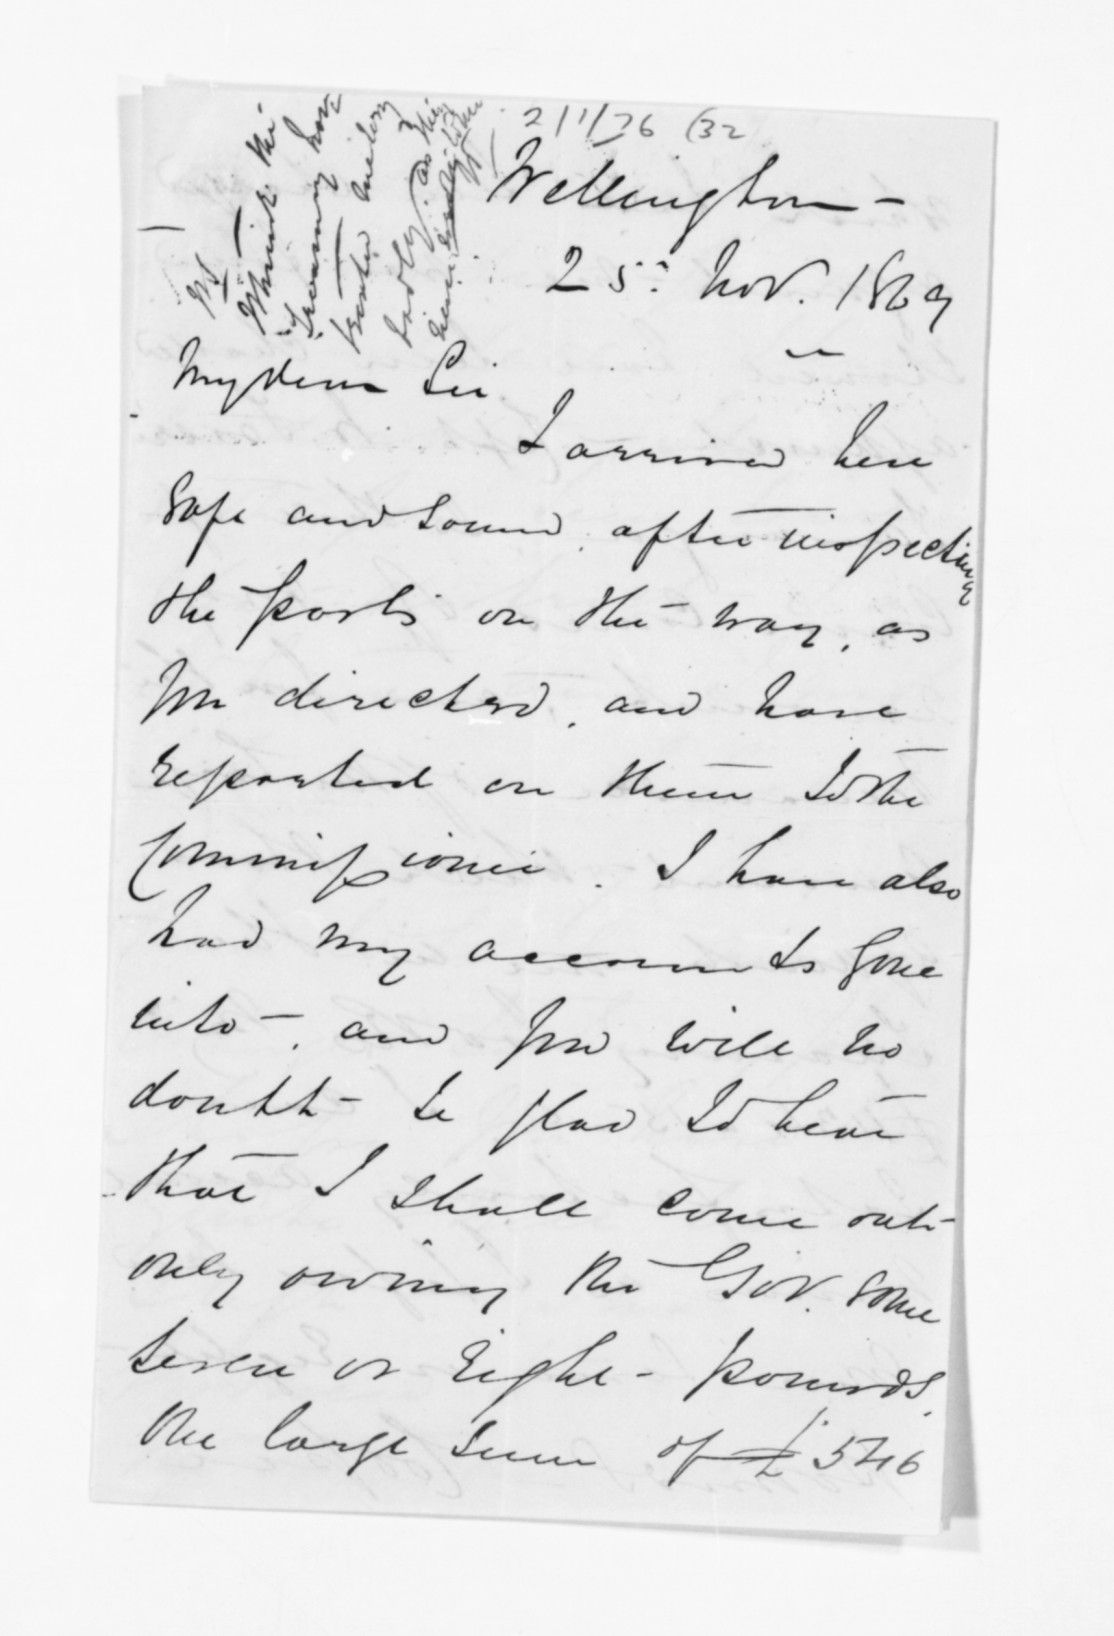 2/1/76 (32
Wellington -
25th Nov. 1869
My dear Sir
I arrived here
safe and sound, after inspecting
the posts on the way, as
you directed, and have
reported on them to the
Commissioner. I have also
had my accounts gone
into, and you will no
doubt be glad to hear
that I shall come out
only owing the Gov. some
seven or eight pounds,
the large sum of £546
PS
I think the
Treasury have
treated me very
badly, as they
even